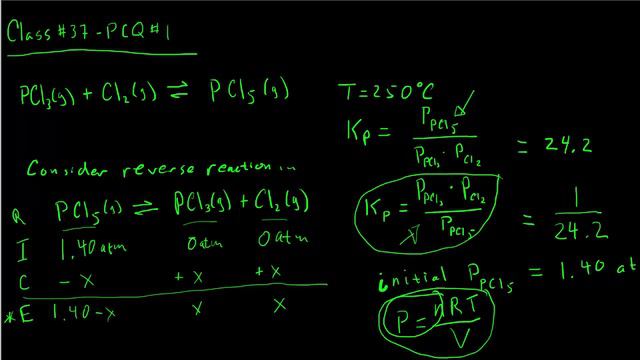 Class #37 - PCQ #1
PCl3(g) + Cl2(g) ⇌ PCl5(g)
T = 250°C
Kp = P_PCl5 / (P_PCl3 · P_Cl2) = 24.2
Consider reverse reaction in
R PCl5(g) ⇌ PCl3(g) + Cl2(g)
I 1.40 atm 0 atm 0 atm
C -x +x +x
*E 1.40-x x x
Kp = (P_PCl3 · P_Cl2) / P_PCl5 = 1 / 24.2
initial P_PCl5 = 1.40 at
P = nRT / V